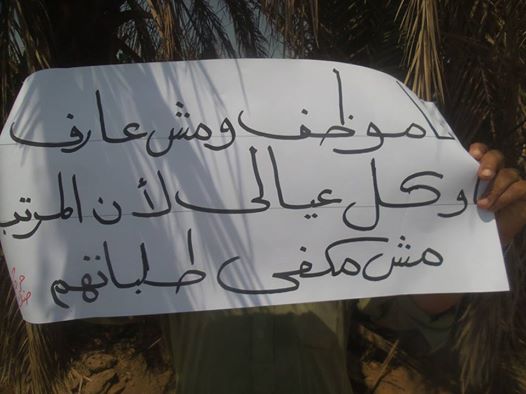 انا موظف ومش عارف
اوكل عيالى لأن المرتب
مش مكفى طلباتهم